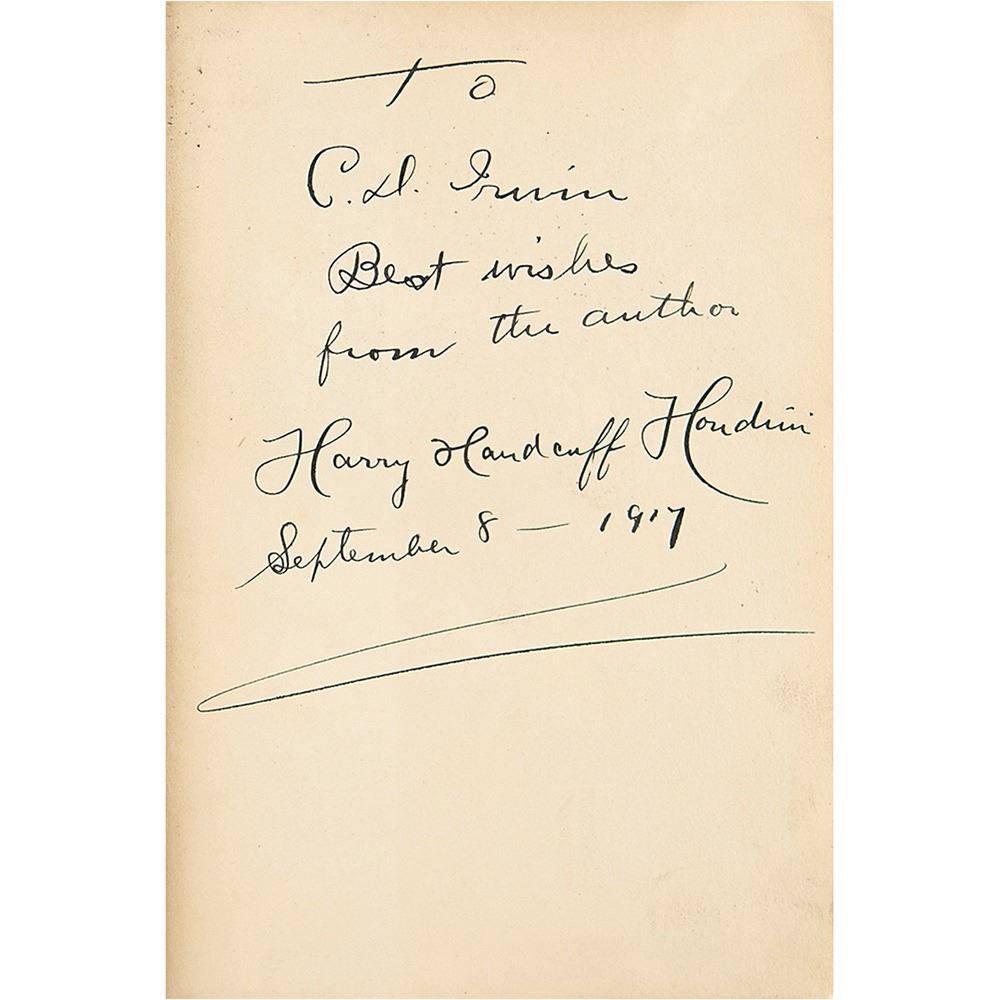 To
C. D. Irwin
Best wishes
from the author
Harry Handcuff Houdini
September 8 — 1917